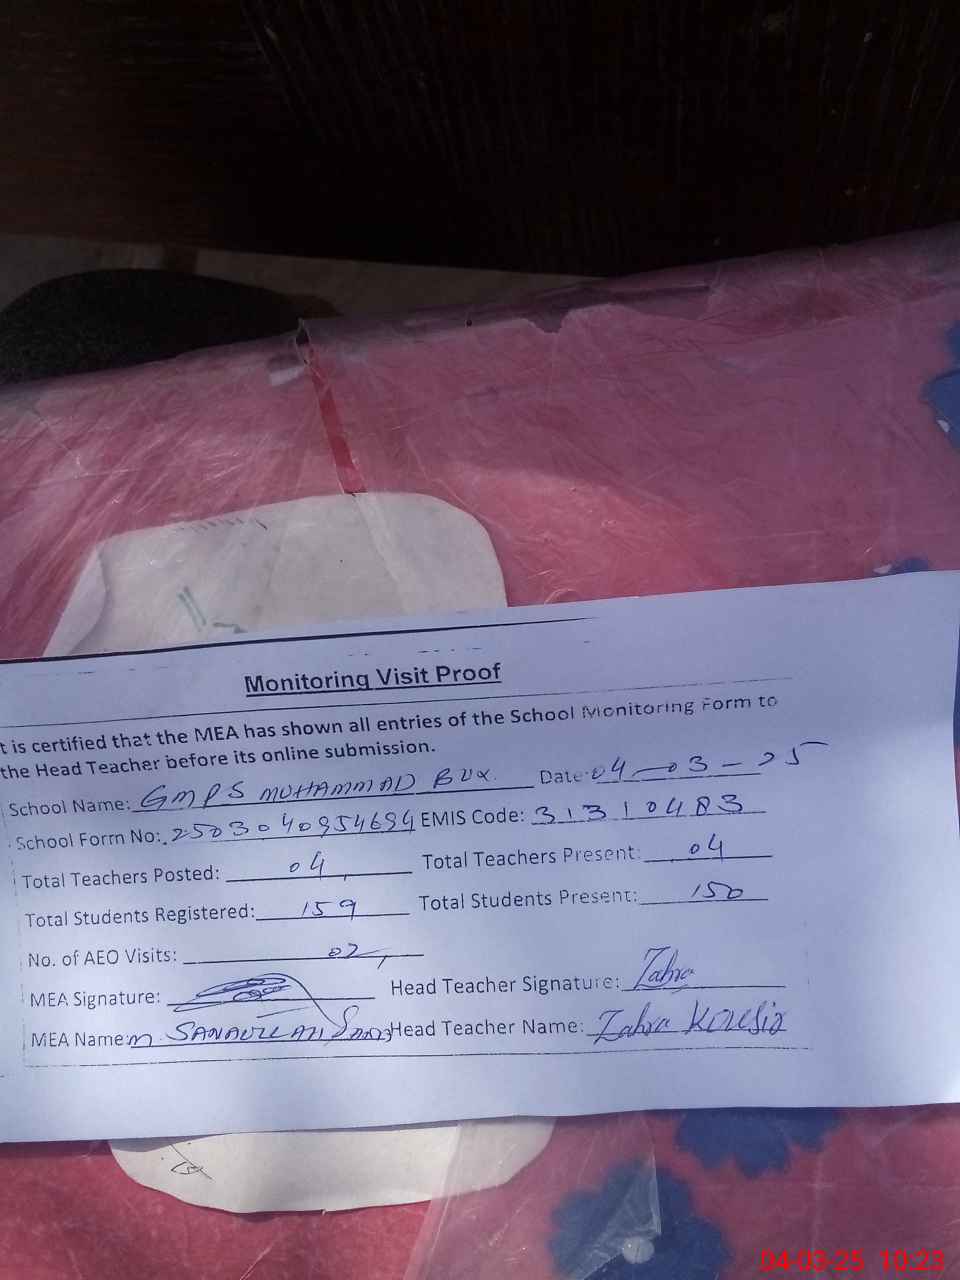 Monitoring Visit Proof
t is certified that the MEA has shown all entries of the School Monitoring Form to
the Head Teacher before its online submission.
School Name: GMPS MUHAMMAD BUX. Date: 04-03-25
School Form No: 2503040954694 EMIS Code: 31310483
Total Teachers Posted: 04 Total Teachers Present: 04
Total Students Registered: 159 Total Students Present: 150
No. of AEO Visits: 02
MEA Signature: Head Teacher Signature: Zahra
MEA Name: M. SANAULLAH Head Teacher Name: Zahra
04-03-25 10:23